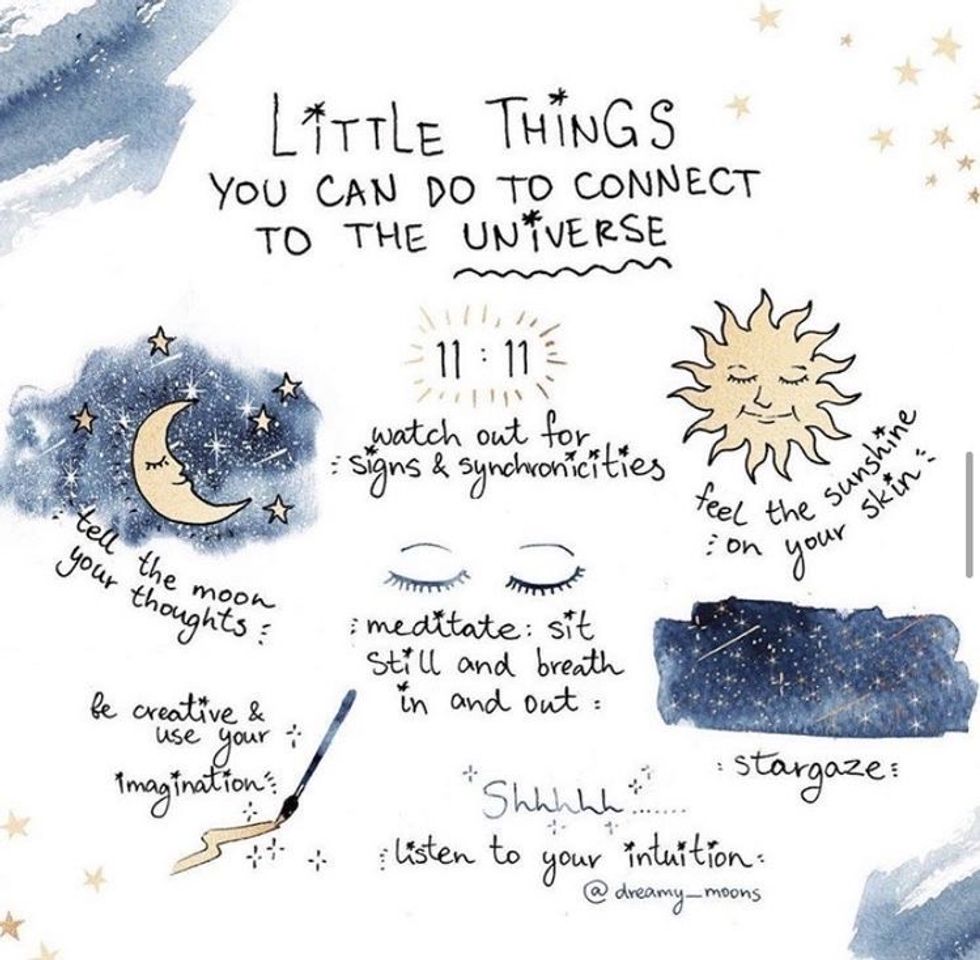 LITTLE THINGS
YOU CAN DO TO CONNECT
TO THE UNIVERSE
11 : 11
watch out for
signs & synchronicities
feel the sunshine
on your skin
tell the moon
your thoughts
meditate: sit
still and breath
in and out
be creative &
use your
imagination
stargaze
Shhhhh.......
listen to your intuition
@dreamy_moons